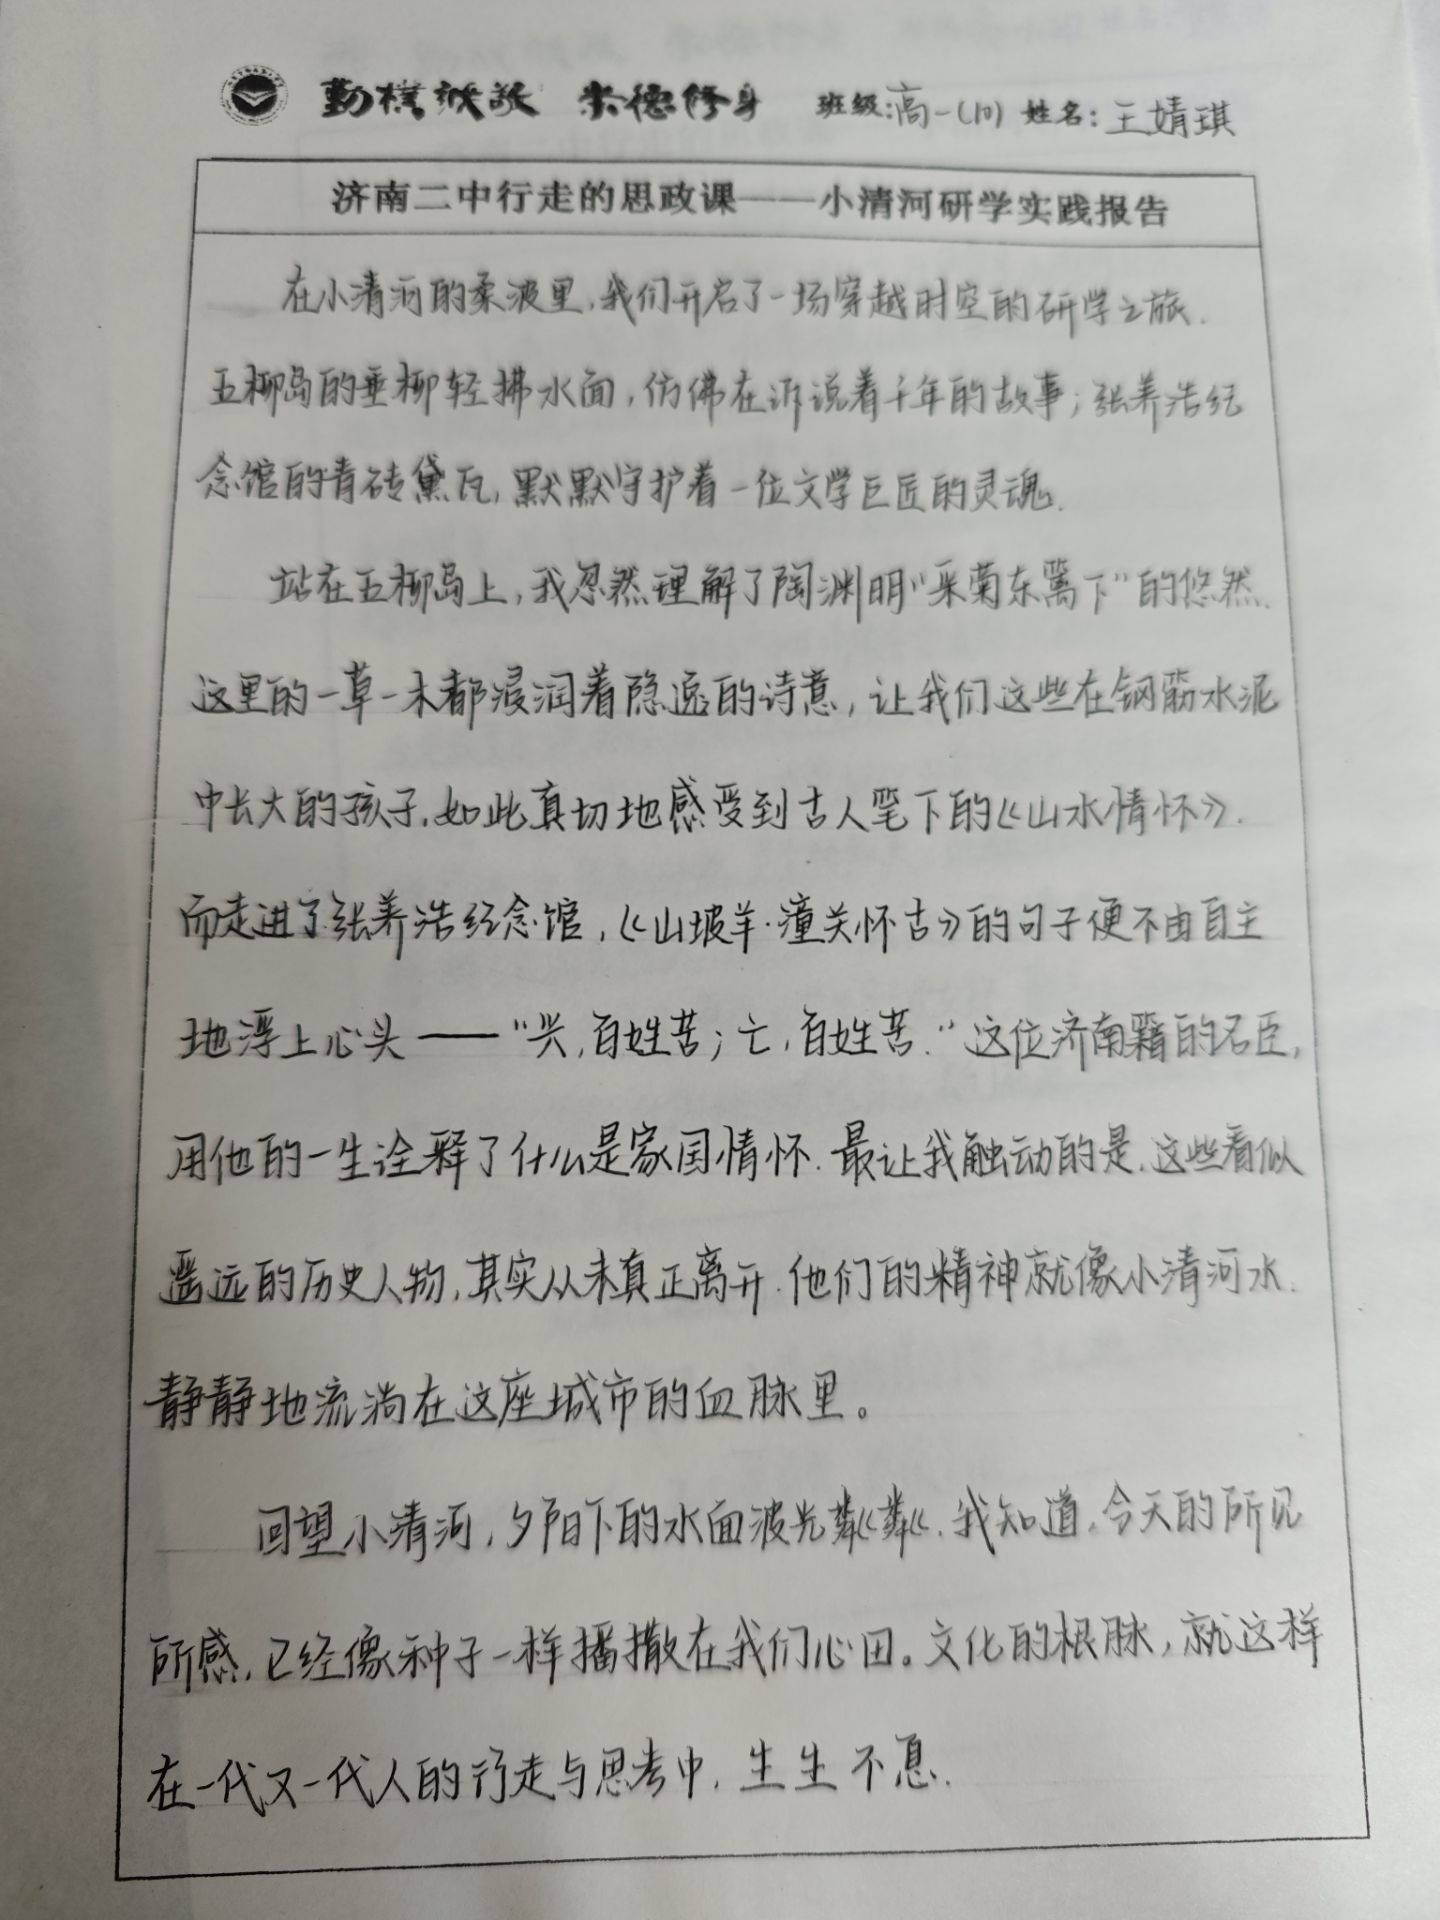 勤朴诚敬 崇德修身 班级:高一(10) 姓名:王婧琪
济南二中行走的思政课——小清河研学实践报告
在小清河的柔波里,我们开启了一场穿越时空的研学之旅.
五柳岛的垂柳轻拂水面,仿佛在诉说着千年的故事;张养浩纪
念馆的青砖黛瓦,默默守护着一位文学巨匠的灵魂.
站在五柳岛上,我忽然理解了陶渊明“采菊东篱下”的悠然.
这里的一草一木都浸润着隐逸的诗意,让我们这些在钢筋水泥
中长大的孩子,如此真切地感受到古人笔下的《山水情怀》.
而走进了张养浩纪念馆,《山坡羊·潼关怀古》的句子便不由自主
地浮上心头——“兴,百姓苦;亡,百姓苦.”这位济南籍的名臣,
用他的一生诠释了什么是家国情怀.最让我触动的是,这些看似
遥远的历史人物,其实从未真正离开.他们的精神就像小清河水.
静静地流淌在这座城市的血脉里。
回望小清河,夕阳下的水面波光粼粼.我知道,今天的所见
所感,已经像种子一样播撒在我们心田。文化的根脉,就这样
在一代又一代人的行走与思考中,生生不息.